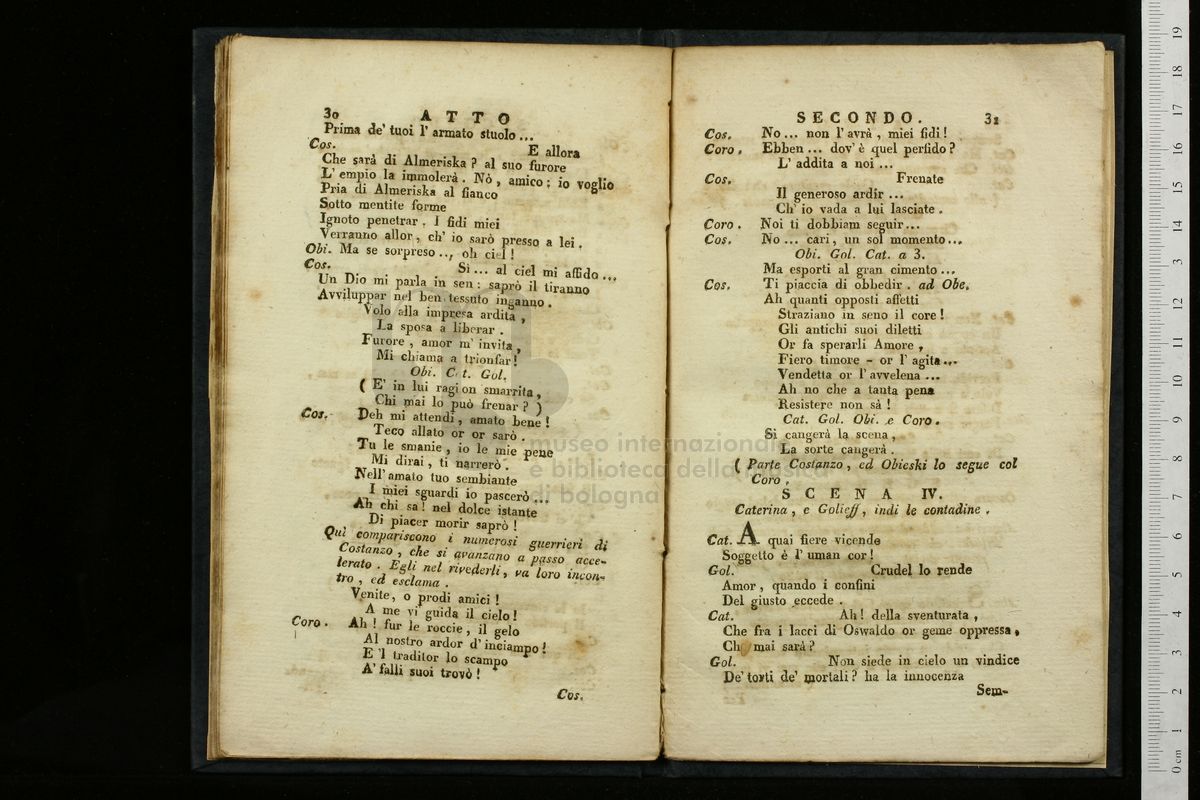 30 ATTO
Prima de' tuoi l' armato stuolo ...
Cos. E allora
Che sarà di Almeriska ? al suo furore
L' empio la immolerà . Nò , amico ; io voglio
Pria di Almeriska al fianco
Sotto mentite forme
Ignoto penetrar . I fidi miei
Verranno allor , ch' io sarò presso a lei .
Obi. Ma se sorpreso .., oh ciel !
Cos. Si ... al ciel mi affido ...
Un Dio mi parla in sen : saprò il tiranno
Avviluppar nel ben tessuto inganno .
Volo alla impresa ardita ,
La sposa a liberar .
Furore , amor m' invita ,
Mi chiama a trionfar !
Obi. Cat. Gol.
( E' in lui ragion smarrita ,
Chi mai lo può frenar ? )
Cos. Deh mi attendi , amato bene !
Teco allato or or sarò .
Tu le smanie , io le mie pene
Mi dirai , ti narrerò .
Nell' amato tuo sembiante
I miei sguardi io pascerò ...
Ah chi sa ! nel dolce istante
Di piacer morir saprò !
Qui compariscono i numerosi guerrieri di
Costanzo , che si avanzano a passo acce-
lerato . Egli nel rivederli , va loro incon-
tro , ed esclama .
Venite , o prodi amici !
A me vi guida il cielo !
Coro . Ah ! fur le roccie , il gelo
Al nostro ardor d' inciampo !
E 'l traditor lo scampo
A' falli suoi trovò !
Cos.
SECONDO. 31
Cos. No ... non l' avrà , miei fidi !
Coro . Ebben ... dov' è quel perfido ?
L' addita a noi ...
Cos. Frenate
Il generoso ardir ...
Ch' io vada a lui lasciate .
Coro . Noi ti dobbiam seguir ...
Cos. No ... cari , un sol momento ...
Obi. Gol. Cat. a 3.
Ma esporti al gran cimento ...
Cos. Ti piaccia di obbedir . ad Obe.
Ah quanti opposti affetti
Straziano in seno il core !
Gli antichi suoi diletti
Or fa sperarli Amore ,
Fiero timore - or l' agita ...
Vendetta or l' avvelena ...
Ah no che a tanta pena
Resistere non sà !
Cat. Gol. Obi. e Coro .
Si cangerà la scena ,
La sorte cangerà .
( Parte Costanzo , ed Obieski lo segue col
Coro .
SCENA IV.
Caterina , e Golieff , indi le contadine .
Cat. A quai fiere vicende
Soggetto è l' uman cor !
Gol. Crudel lo rende
Amor , quando i confini
Del giusto eccede .
Cat. Ah ! della sventurata ,
Che fra i lacci di Oswaldo or geme oppressa ,
Che mai sarà ?
Gol. Non siede in cielo un vindice
De' torti de' mortali ? ha la innocenza
Sem-
museo internazionale
e biblioteca della musica
di bologna
0 cm 1 2 3 4 5 6 7 8 9 10 11 12 13 14 15 16 17 18 19